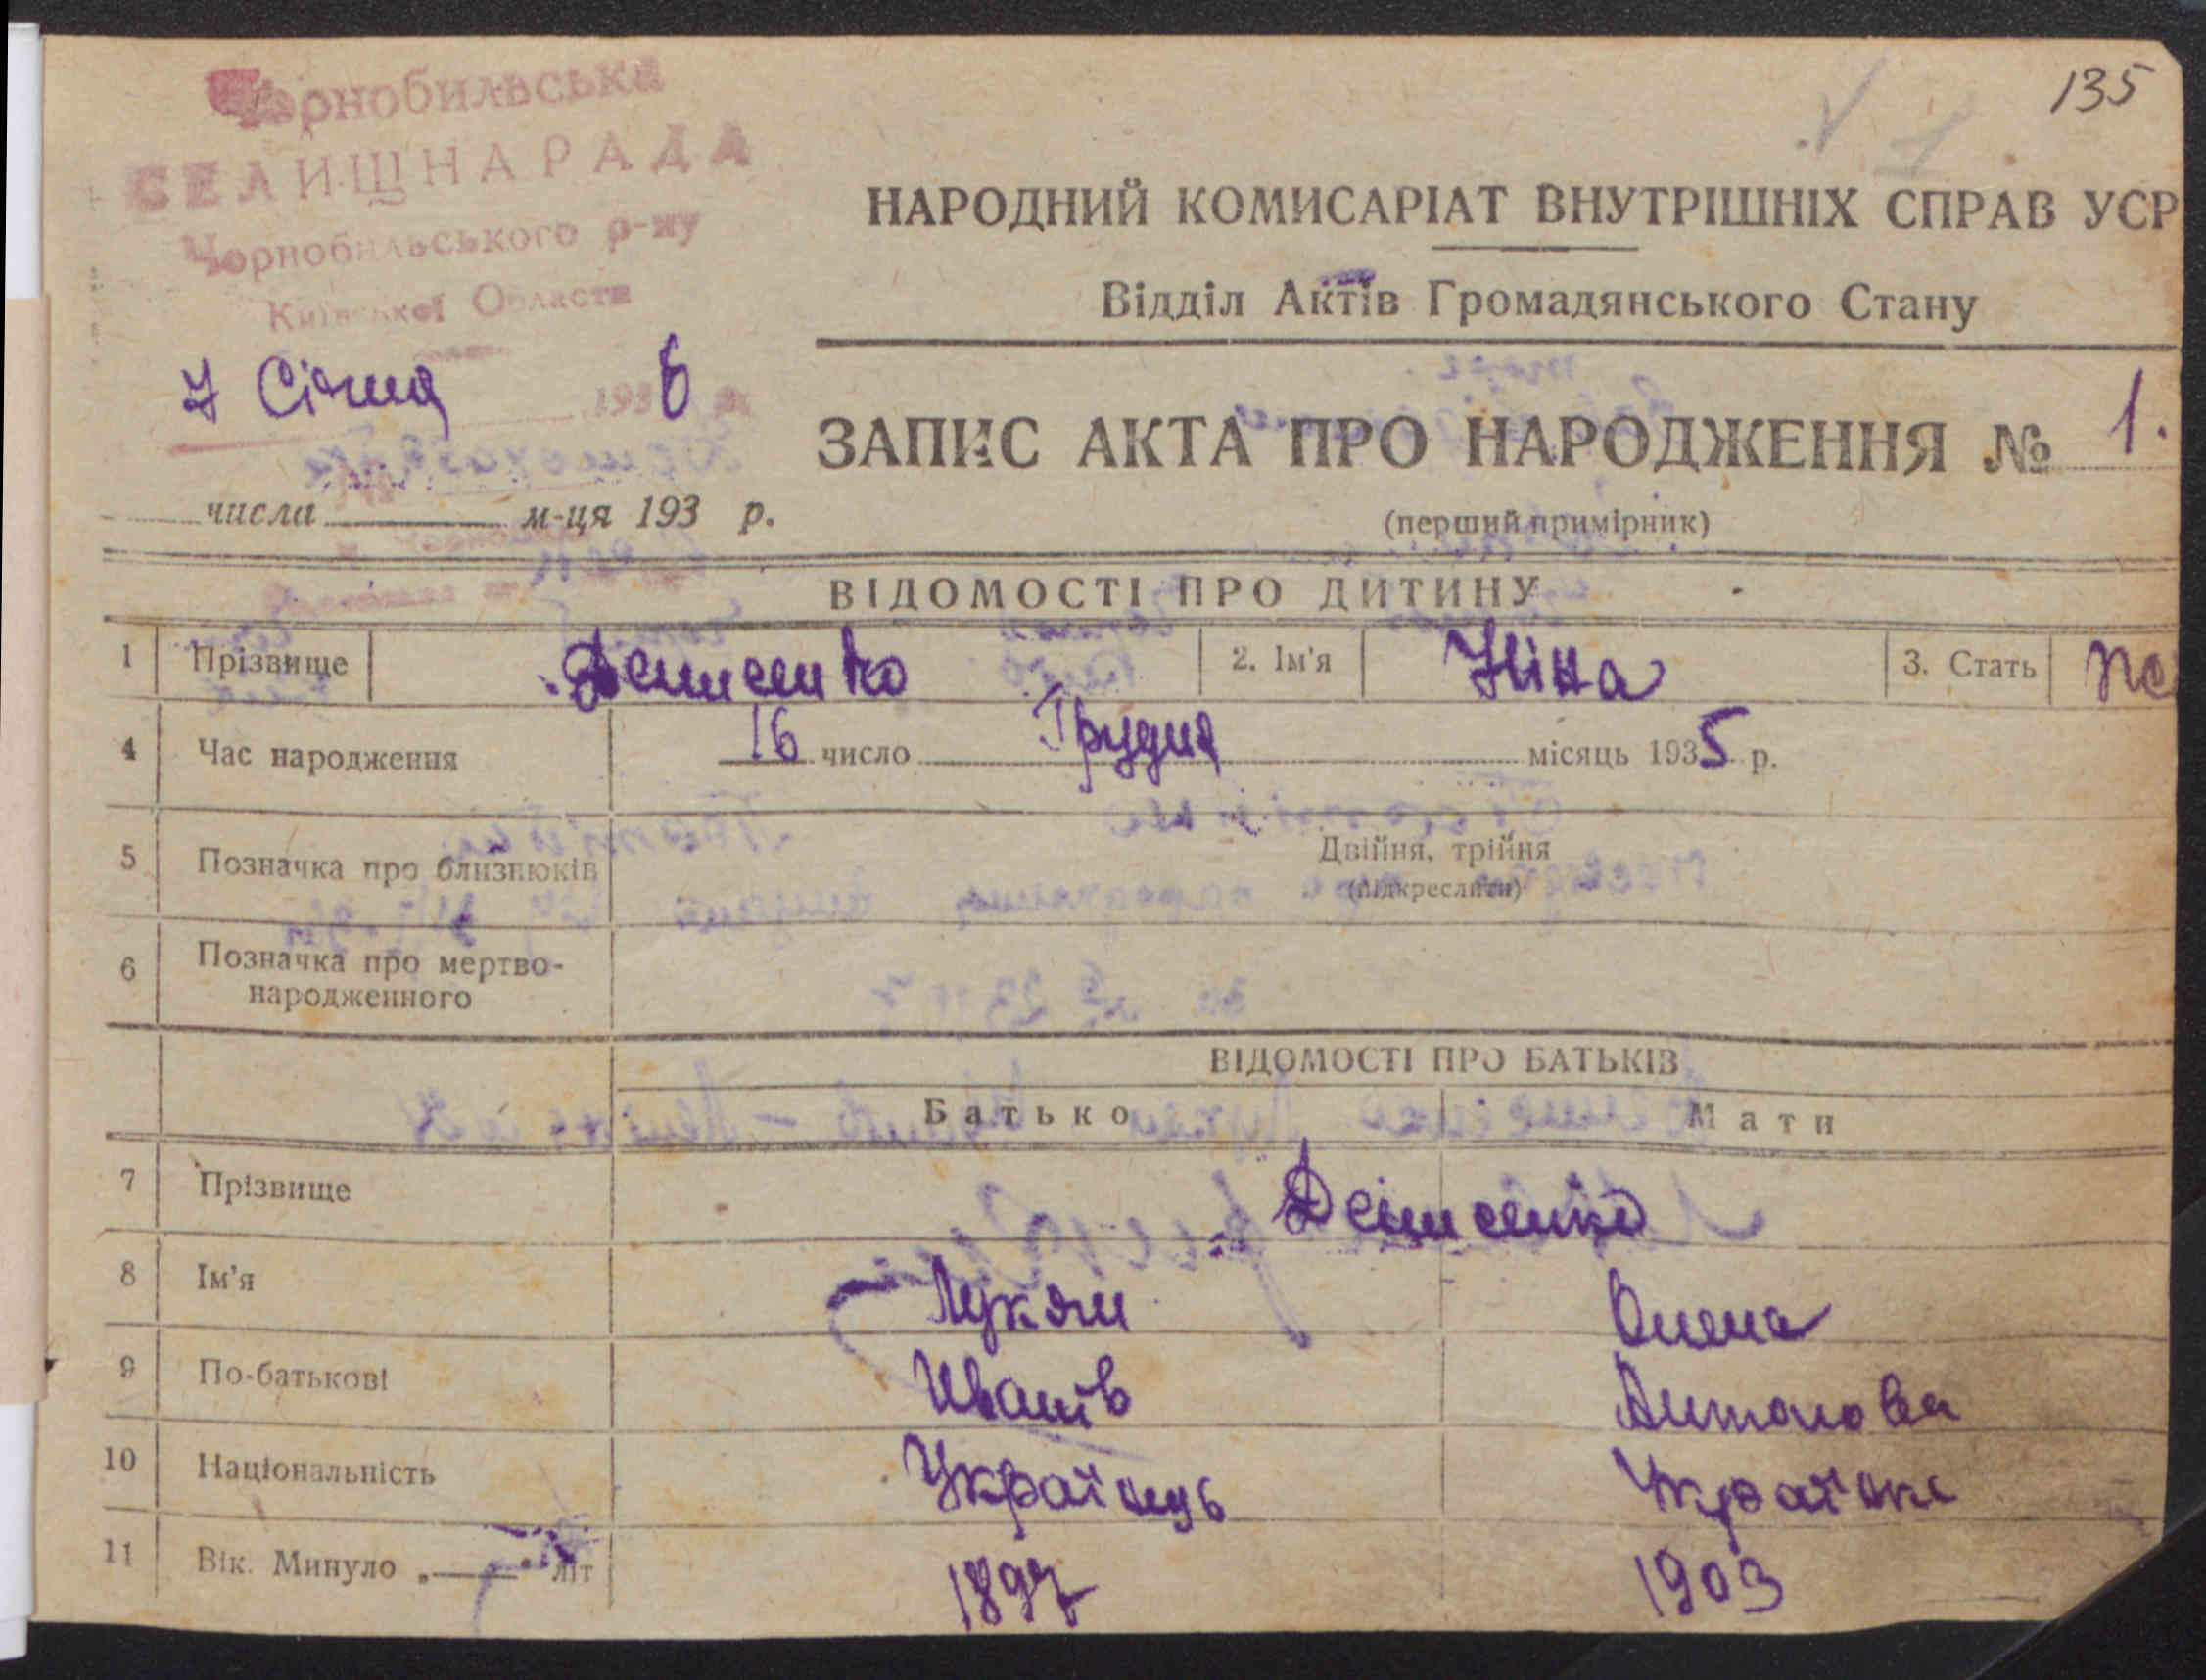 135
Чорнобильська
СЕЛИЩНА РАДА
Чорнобильського р-ну
Київської Области
7 Січня 1936 р.
числа м-ця 193 р.
НАРОДНИЙ КОМИСАРІАТ ВНУТРІШНІХ СПРАВ УСР
Відділ Актів Громадянського Стану
ЗАПИС АКТА ПРО НАРОДЖЕННЯ № 1.
(перший примірник)
ВІДОМОСТІ ПРО ДИТИНУ
1 Прізвище Денисенко 2. Ім'я Ніна 3. Стать
4 Час народження 16 число Грудня місяць 1935 р.
5 Позначка про близнюків Двійня, трійня
(підкреслити)
6 Позначка про мертво-
народженного
ВІДОМОСТІ ПРО БАТЬКІВ
Батько Мати
7 Прізвище Денисенко
8 Ім'я Лукян Олена
9 По-батькові Иванів Антонова
10 Національність Українець Українка
11 Вік. Минуло „—" літ 1897 1903